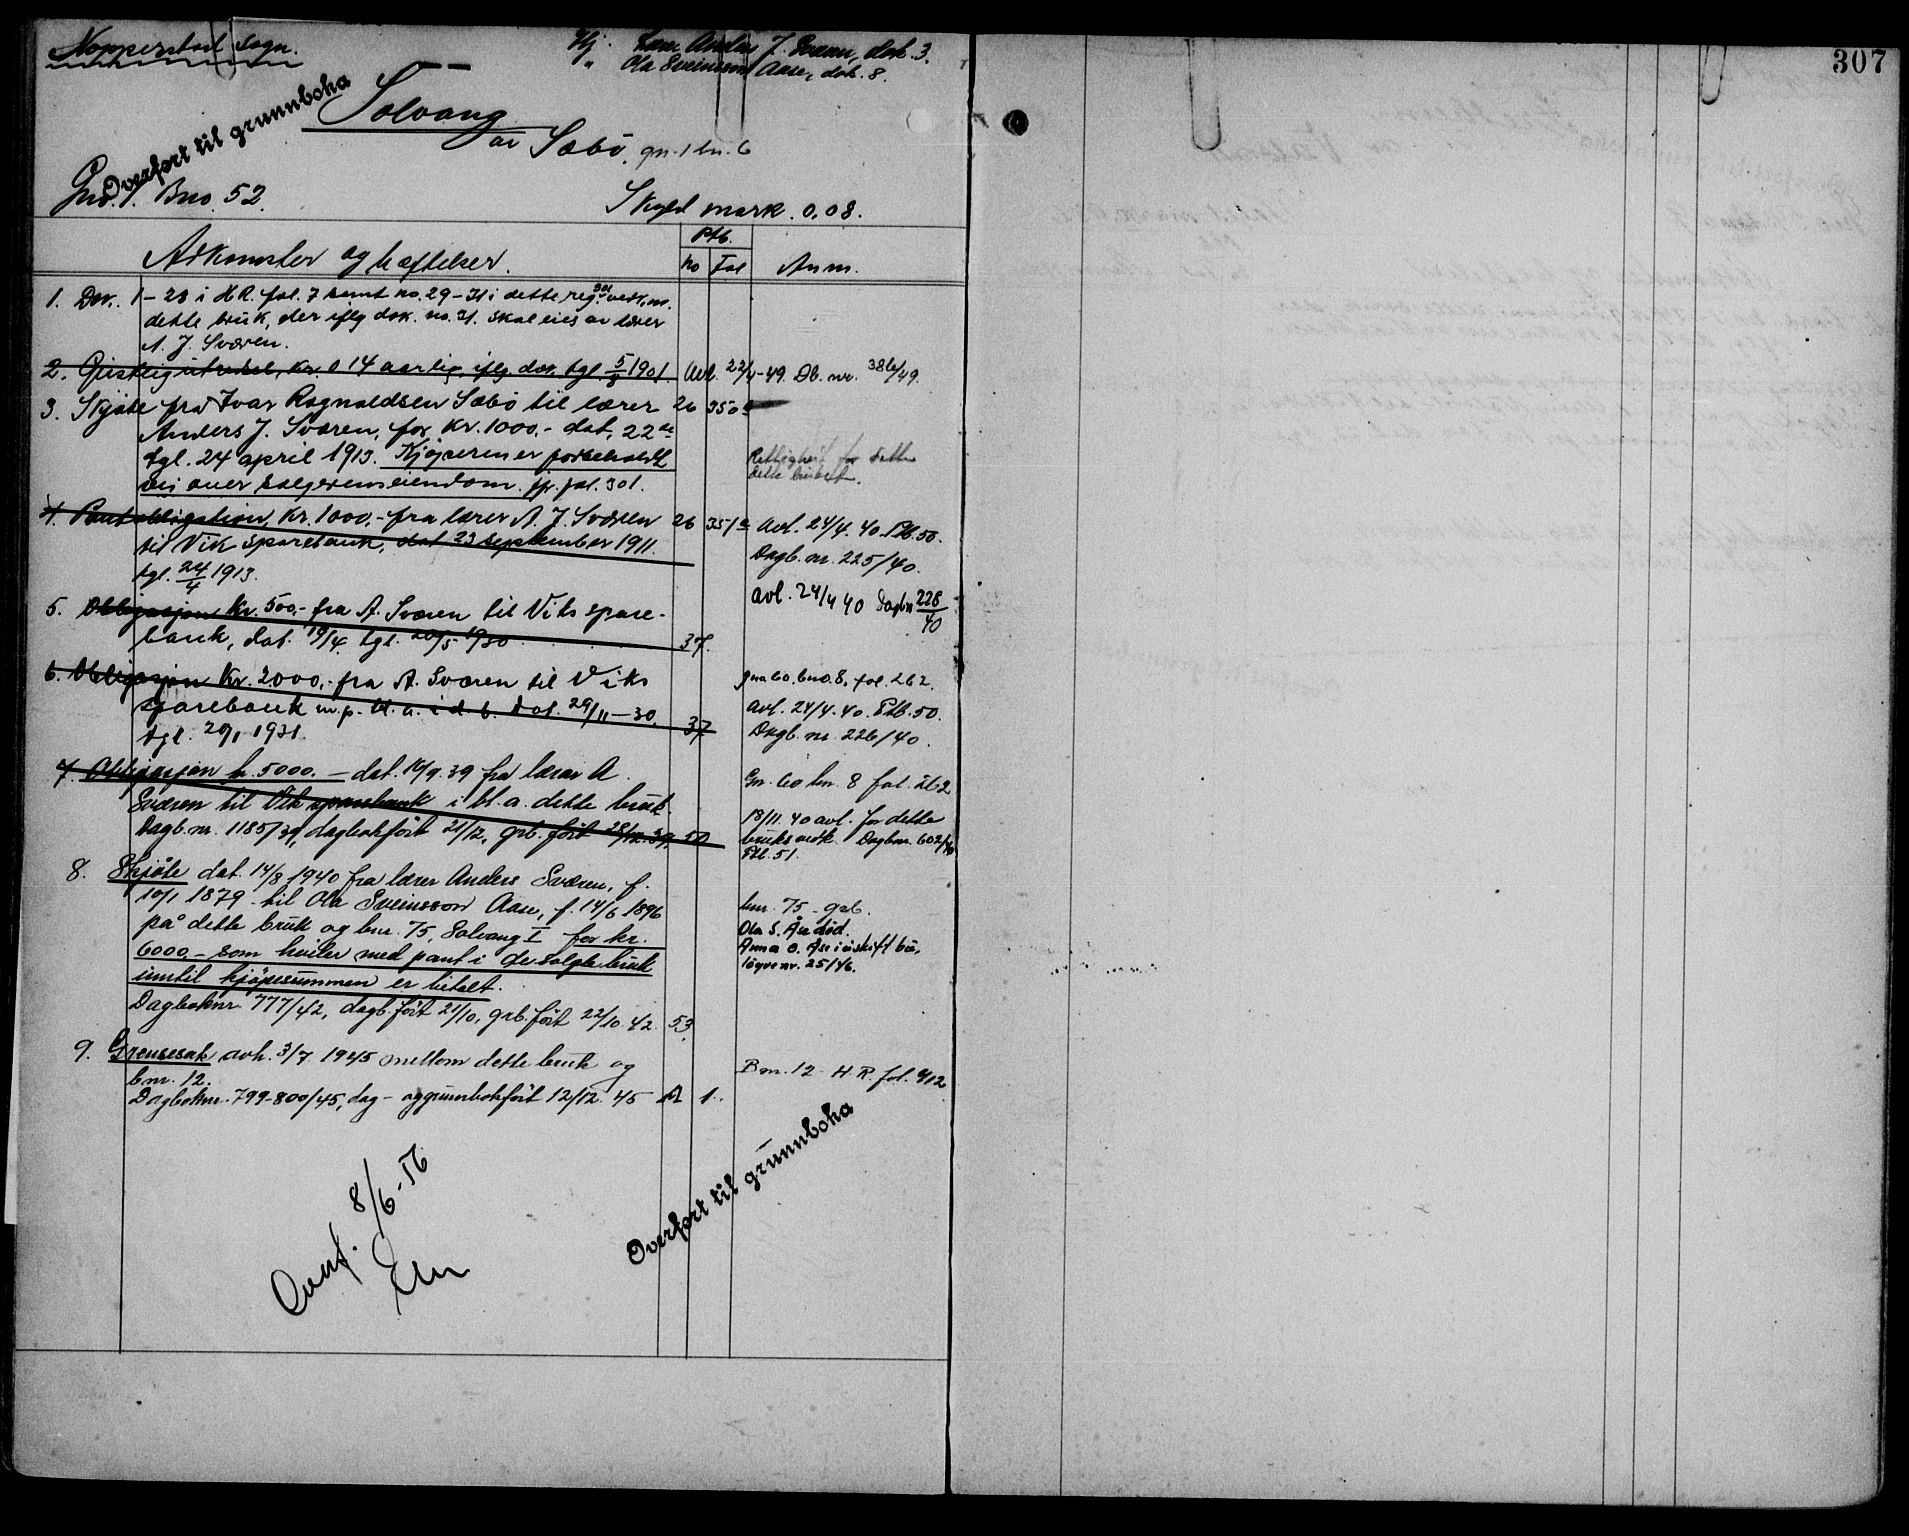 307
Hopperstad sogn.
Hj. Lærer Anders J. Sværen, dok. 3.
" Ola Sveinsson Aase, dok. 8.
Overført til grunnboka
Solvang
av Sæbö. gn. 1 bn. 6
Gno. 1. Bno. 52.
Skyld mark. 0,08.
Ptb.
Adkomster og hæftelser. No Fol Anm.
1. Dok. 1-28 i H.R. fol. 7 samt no. 29-31 i dette reg. fol. 301 vedk.
dette bruk, der iflg dok. no. 31. skal eies av lærer
A. J. Sværen.
2. Geistlig utredsel, kr. 0,14 aarlig, iflg. dok. tgl. 5/8 1901. Avl. 22/4-49. Db. nr. 386/49.
3. Skjöte fra Ivar Ragnvaldsen Sæbö til lærer 26 350
Anders J. Sværen, for kr. 1000,- dat. 22de
tgl. 24 april 1913. Kjöperen er forbeholdt
vei over sælgerens eiendom. jfr. fol. 301.
Rettighet for dette
dette bruket.
4. Pantobligation, kr. 1000,- fra lærer A. J. Sværen 26 351a Avl. 24/4. 40. Ptb. 50.
til Vik sparebank, dat 23 september 1911.
tgl. 24/4 1913.
Dagb. nr. 225/40.
5. Obligasjon kr. 500,- fra A. Sværen til Viks spare-
bank, dat. 19/4 tgl. 20/5 1930 37.
avl. 24/4 40 Dagb n 228/40
6. Obligasjon Kr. 2000,- fra A. Sværen til Viks
sparebank m. p. bl. a. i d. b. Dat. 29/11-30. 37
tgl. 20/1 1931.
gno 60. bno. 8. fol. 262.
Avl. 24/4. 40. Ptb. 50.
Dagb. nr. 226/40.
7. Obligasjon kr. 5000.- dat. 16/9. 39 fra lærar A.
Sværen til Vik sparebank i bl. a. dette bruk.
Dagb. nr. 1185/39, dagbokført 21/12, grb. ført 28/12. 39. 50
Gn. 60 bn. 8 fol. 262
18/11. 40 avl. for dette
bruks vedk. Dagbnr. 602/40
Ptb. 51.
8. Skjöte dat. 14/8 1940 fra lærer Anders Sværen, f.
10/1 1879 til Ola Sveinsson Aase, f. 14/6 1896
på dette bruk og bnr. 75, Solvang I for kr.
6000,- som hviler med pant i de solgte bruk
inntil kjöpesummen er betalt.
Dagboknr. 777/42, dagb. ført 21/10, grb. ført 22/10 42. 53.
bnr. 75 - grb.
Ola S. Åse död.
Anna O. Åse i uskift bu,
löyve nr. 25/46.
9. Grensesak avh. 3/7 1945 mellom dette bruk og
bnr. 12.
Dagboknr. 799-800/45, dag- og grunnbokført 12/12. 45 A 1.
Bnr. 12 H. R. fol. 412
Overført til grunnboka
Overf. 8/6-56